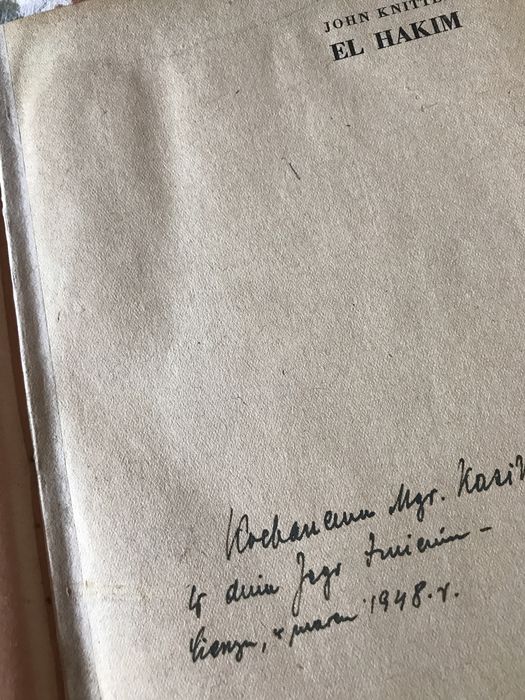 JOHN KNITTE
EL HAKIM
Kochanemu Mgr. Kazik
w dniu Jego Imienin -
w marcu 1948. r.